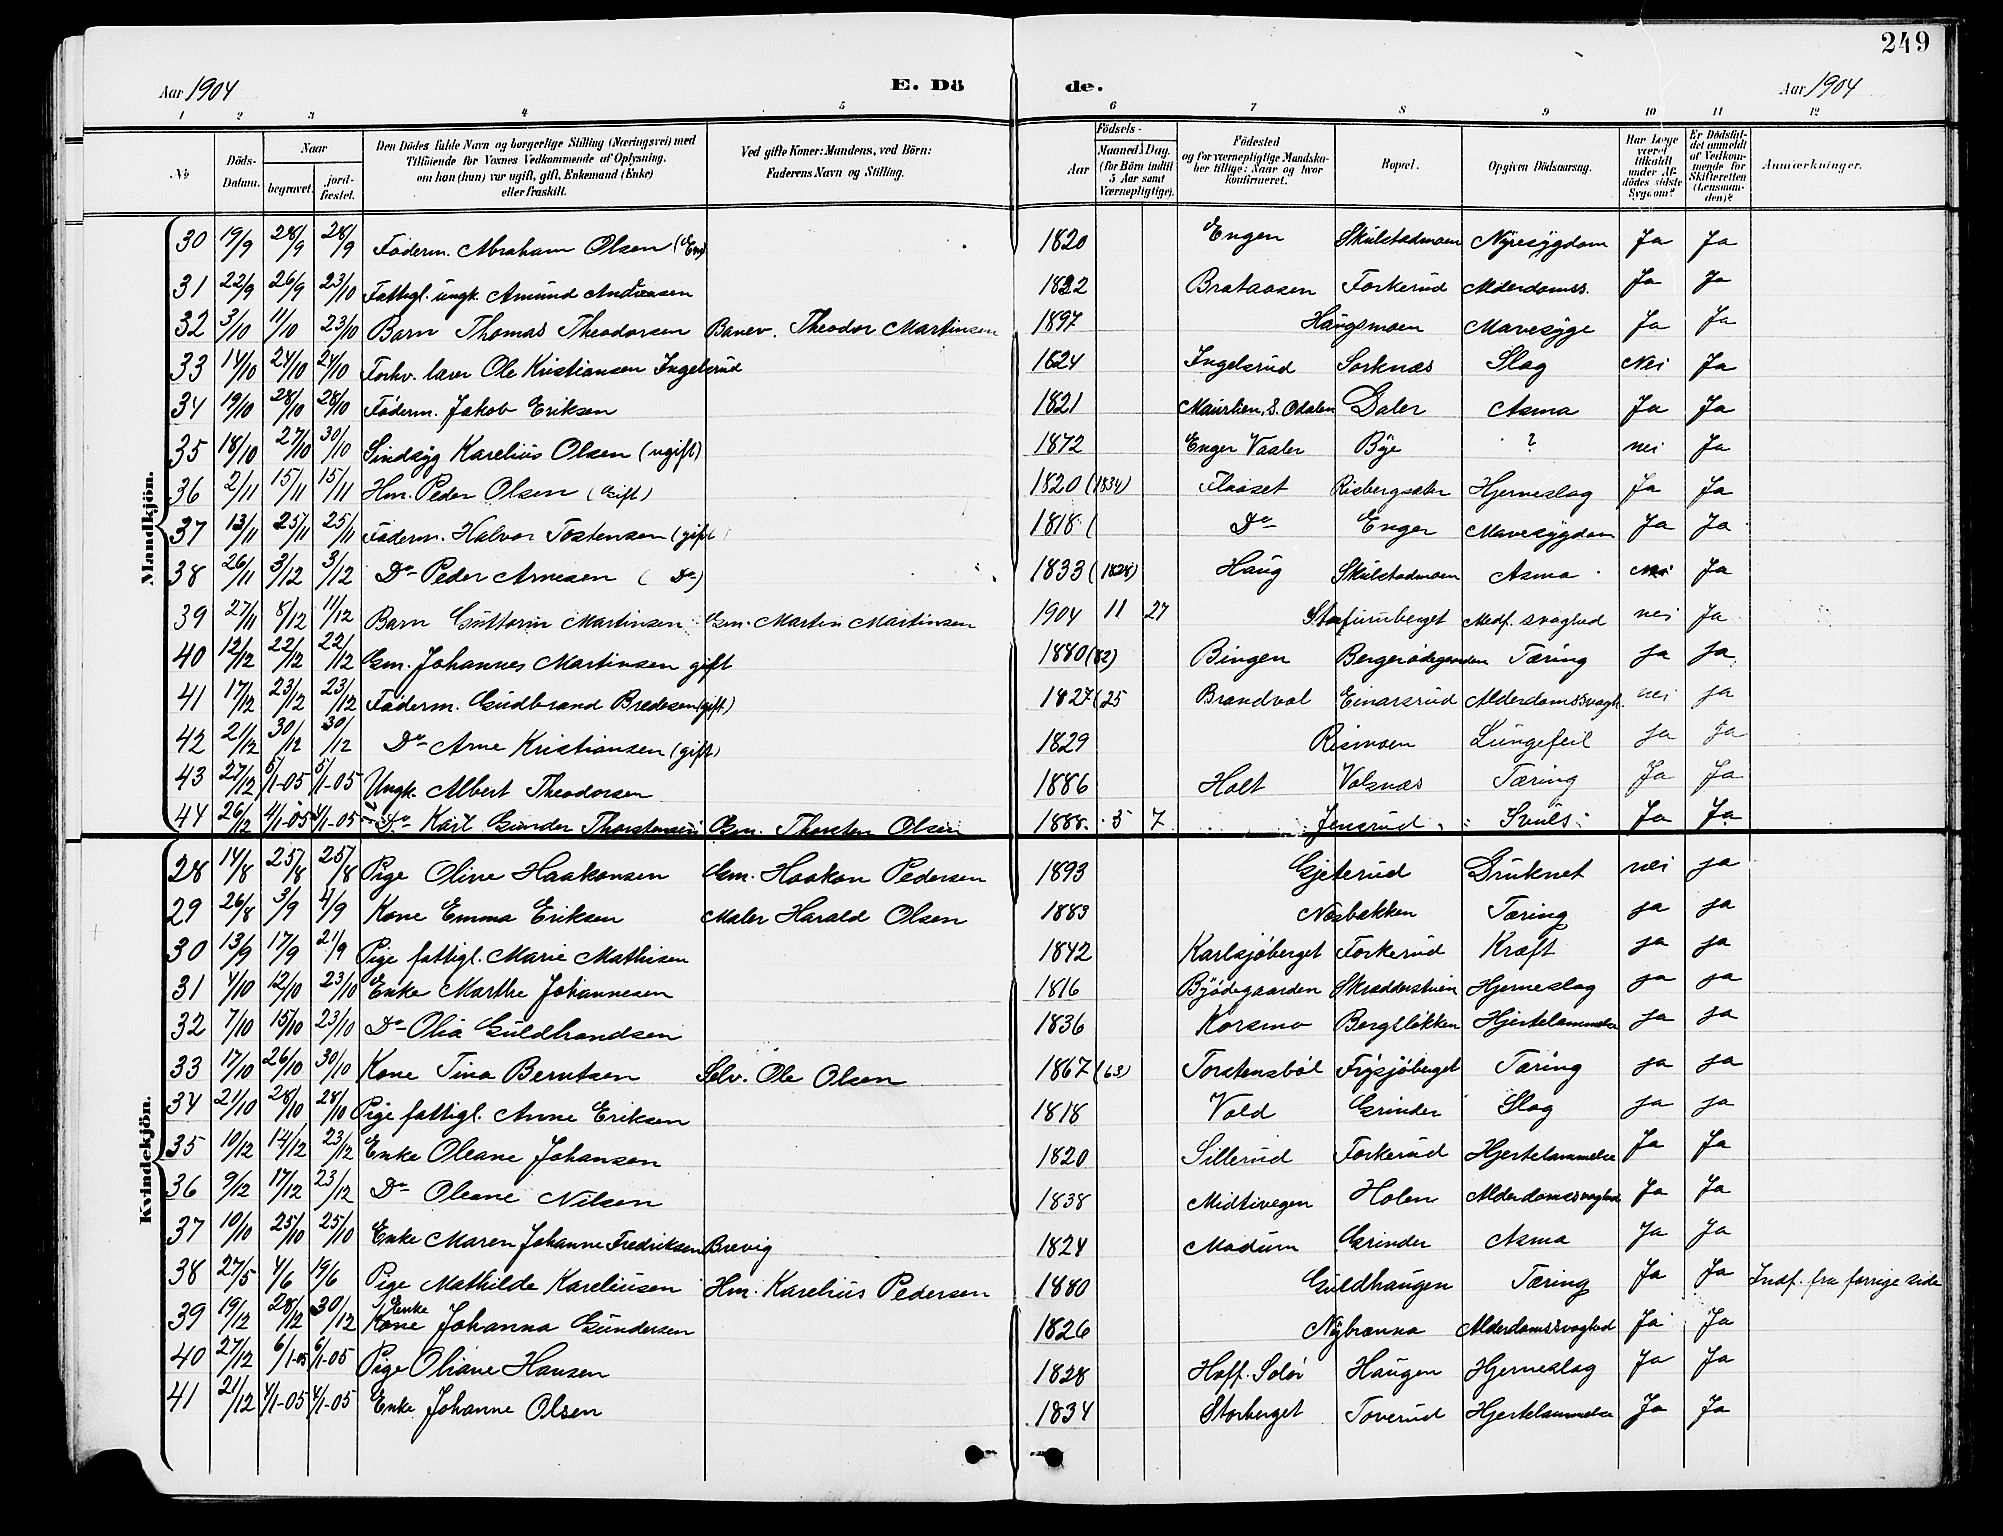 249
Aar 1904 E. Dö de. Aar 1904
1 2 3 4 5 6 7 8 9 10 11 12
No Döds-Datum. Naar begravet. jord-fæstet. Den Dödes fulde Navn og borgerlige Stilling (Næringsvei) med Tilföiende for Voxnes Vedkommende af Oplysning, om han (hun) var ugift, gift, Enkemand (Enke) eller fraskilt. Ved gifte Koner: Mandens, ved Börn: Faderens Navn og Stilling. Födsels- Aar Maaned. Dag. (for Börn indtil 5 Aar samt Værnepligtige). Födested og for værnepligtige Mandska-ber tillige: Naar og hvor konfirmeret. Bopæl. Opgiven Dödsaarsag. Har Læge været tilkaldt under Af-dödes sidste Sygdom? Er Dödsfal-det anmeldt af Vedkom-mende for Skifteretten (Lensman-den)? Anmærkninger.
Mandkjön.
30 19/9 28/9 28/9 Föderm. Abraham Olsen (Em) 1820 Engen Skulstadmoen Nyresygdom Ja Ja
31 22/9 26/9 23/10 Fattigl. ungk. Amund Andreasen 1822 Brataasen Torkerud Alderdomss. Ja Ja
32 3/10 11/10 23/10 Barn Thomas Theodorsen Banev. Theodor Martinsen 1897 Haugsmoen Mavesyge Ja Ja
33 14/10 24/10 24/10 Forhv. lærer Ole Kristiansen Ingelsrud 1824 Ingelsrud Sorknæs Slag Nei Ja
34 19/10 28/10 28/10 Föderm. Jakob Eriksen 1821 Maurlien, S. Odalen Daler Asma Ja Ja
35 18/10 27/10 30/10 Sindsyg Karelius Olsen (ugift) 1872 Enger Vaaler Bye ? nei Ja
36 2/11 15/11 15/11 Hm. Peder Olsen (Gift) 1820 (1834) Flaaset Risbergsæter Hjerneslag Ja Ja
37 13/11 25/11 25/11 Föderm. Halvor Tostensen (gift) 1818 ( Do Enger Mavesygdom Ja Ja
38 26/11 3/12 3/12 Do Peder Arnesen ( Do) 1833 (1828) Haug Skulstadmoen Asma Nei Ja
39 27/11 8/12 11/12 Barn Guttorm Martinsen Gm. Martin Martinsen 1904 11 27 Storfuruberget Medf. svaghed nei Ja
40 12/12 22/12 22/12 Gm. Johannes Martinsen gift 1880 (82) Bingen Bergerödegaarden Tæring ja ja
41 17/12 23/12 23/12 Föderm. Gudbrand Bredesen (gift) 1827 (25 Brandval Einarsrud Alderdomssvagh. nei ja
42 21/12 30/12 30/12 Do Arne Kristiansen (gift) 1829 Rismoen Lungefeil ja ja
43 27/12 5/1-05 5/1-05 Ungk. Albert Theodorsen 1886 Holt Valsnæs Tæring Ja Ja
44 26/12 4/1-05 4/1-05 Do Karl Gunder Thorstensen Gm. Thorsten Olsen 1888 5 7 Jensrud Svuls Ja Ja
Kvindekjön.
28 14/8 25/8 25/8 Pige Oline Haakonsen Gm. Haakon Pedersen 1893 Gjeterud Druknet nei ja
29 26/8 3/9 4/9 Kone Emma Eriksen Maler Harald Olsen 1883 Næsbækken Tæring ja ja
30 13/9 17/9 21/9 Pige fattigl. Marie Mathisen 1842 Karlsjöberget Torkerud Kræft ja ja
31 4/10 12/10 23/10 Enke Marthe Johannesen 1816 Byödegaarden Skrædderstuen Hjerneslag ja ja
32 7/10 15/10 23/10 Do Olia Guldbrandsen 1836 Korsmo Bergslökken Hjertelammelse ja ja
33 17/10 26/10 30/10 Kone Tina Berntsen Selv. Ole Olsen 1867 (63) Torstensböl Frysjöberget Tæring ja ja
34 21/10 28/10 28/10 Pige fattigl. Anne Eriksen 1818 Vold Grinder Slag ja ja
35 10/12 14/12 23/12 Enke Oleane Johansen 1820 Sillerud Torkerud Hjertelammelse Ja Ja
36 9/12 17/12 23/12 Do Oleane Nilsen 1838 Midtivegen Holen Alderdomssvaghed Ja Ja
37 10/10 25/10 25/10 Enke Maren Johanne Fredriksen Brevig 1824 Modum Grinder Asma Ja Ja
38 27/5 4/6 19/6 Pige Mathilde Kareliusen Hm. Karelius Pedersen 1880 Guldhaugen Tæring Ja Ja Indf. fra forrige side
39 19/12 28/12 30/12 Enke Kone Johanna Gundersen 1826 Nybrænna Alderdomssvaghed Ja Ja
40 27/12 6/1-05 6/1-05 Pige Oliane Hansen 1828 Hoff. Solör Haugen Hjerneslag Ja Ja
41 21/12 4/1-05 4/1-05 Enke Johanne Olsen 1834 Storberget Toverud Hjertelammelse Ja Ja